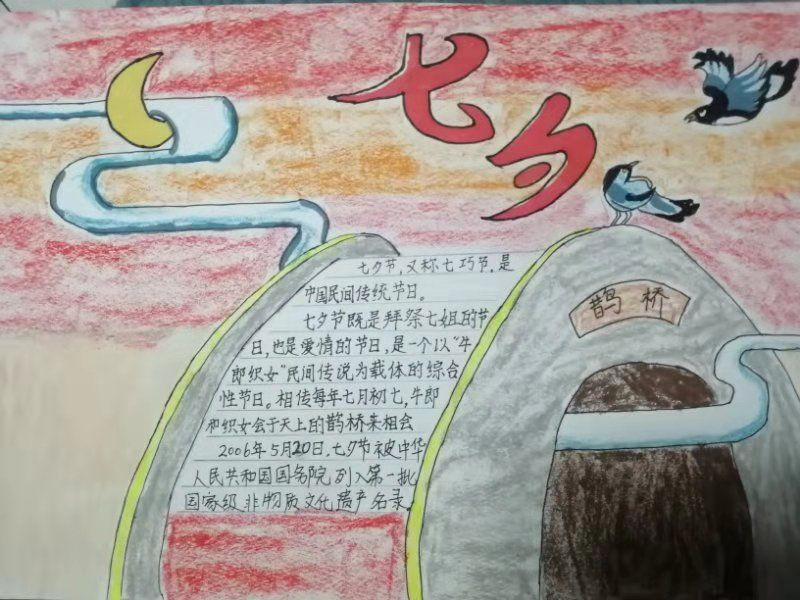 七夕
鹊桥
七夕节,又称七巧节,是
中国民间传统节日。
七夕节既是拜祭七姐的节
日,也是爱情的节日,是一个以“牛
郎织女”民间传说为载体的综合
性节日。相传每年七月初七,牛郎
和织女会于天上的鹊桥来相会
2006年5月20日,七夕节被中华
人民共和国国务院列入第一批
国家级非物质文化遗产名录。